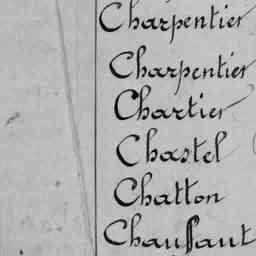 Charpentier
Charpentier
Chartier
Chastel
Chatton
Chaussaut